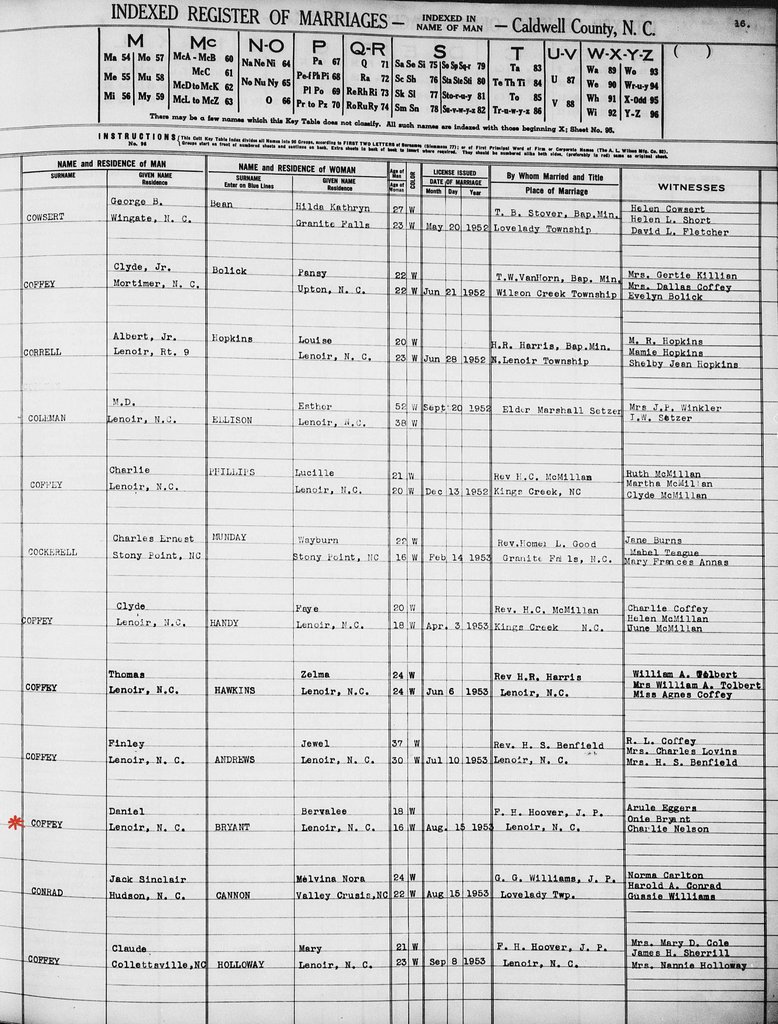 INDEXED REGISTER OF MARRIAGES — INDEXED IN NAME OF MAN — Caldwell County, N. C.
16.
M Mc N-O P Q-R S T U-V W-X-Y-Z ( )
Ma 54 Mo 57 McA - McB 60 Na Ne Ni 64 Pa 67 Q 71 Sa Se Si 75 So Sp Sq-r 79 Ta 83 U 87 Wa 89 Wo 93
Me 55 Mu 58 McC 61 No Nu Ny 65 Pe-f Ph Pi 68 Ra 72 Sc Sh 76 Sta Ste Sti 80 Te Th Ti 84 V 88 We 90 Wr-u-y 94
Mi 56 My 59 McD to McK 62 O 66 Pl Po 69 Re Rh Ri 73 Sk Sl 77 Sto-r-u-y 81 To 85 Wh 91 X-Odd 95
McL to McZ 63 Pr to Px 70 Ro Ru Ry 74 Sm Sn 78 Su-v-w-y-z 82 Tr-u-w-y-z 86 Wi 92 Y-Z 96
There may be a few names which this Key Table does not classify. All such names are indexed with those beginning X; Sheet No. 95.
INSTRUCTIONS
No. 96
NAME and RESIDENCE of MAN NAME and RESIDENCE of WOMAN Age of Man COLOR LICENSE ISSUED By Whom Married and Title WITNESSES
SURNAME GIVEN NAME Residence SURNAME Enter on Blue Lines GIVEN NAME Residence Age of Woman DATE OF MARRIAGE Month Day Year Place of Marriage
George B. Bean Hilda Kathryn 27 W T. B. Stover, Bap.Min. Helen Cowsert
COWSERT Wingate, N. C. Granite Falls 23 W May 20 1952 Lovelady Township Helen L. Short
David L. Fletcher
Clyde, Jr. Bolick Pansy 22 W T.W.VanHorn, Bap. Min. Mrs. Gertie Killian
COFFEY Mortimer, N. C. Upton, N. C. 22 W Jun 21 1952 Wilson Creek Township Mrs. Dallas Coffey
Evelyn Bolick
Albert, Jr. Hopkins Louise 20 W H.R. Harris, Bap.Min. M. R. Hopkins
CORRELL Lenoir, Rt. 9 Lenoir, N. C. 23 W Jun 28 1952 N.Lenoir Township Mamie Hopkins
Shelby Jean Hopkins
M.D. Esther 52 W Sept 20 1952 Elder Marshall Setzer Mrs J.P. Winkler
COLEMAN Lenoir, N.C. ELLISON Lenoir, N.C. 38 W I.W. Setzer
Charlie PHILLIPS Lucille 21 W Rev H.C. McMillan Ruth McMillan
COFFEY Lenoir, N.C. Lenoir, N.C. 20 W Dec 13 1952 Kings Creek, NC Martha McMillan
Clyde McMillan
Charles Ernest MUNDAY Wayburn 22 W Rev.Homer L. Good Jane Burns
COCKERELL Stony Point, NC Stony Point, NC 16 W Feb 14 1953 Granite Falls, N.C. Mabel Teague
Mary Frances Annas
Clyde Faye 20 W Rev. H.C. McMillan Charlie Coffey
COFFEY Lenoir, N.C. HANDY Lenoir, N.C. 18 W Apr. 3 1953 Kings Creek N.C. Helen McMillan
June McMillan
Thomas Zelma 24 W Rev H.R. Harris William A. Tolbert
COFFEY Lenoir, N.C. HAWKINS Lenoir, N.C. 24 W Jun 6 1953 Lenoir, N.C. Mrs William A. Tolbert
Miss Agnes Coffey
Finley Jewel 37 W Rev. H. S. Benfield R. L. Coffey
COFFEY Lenoir, N. C. ANDREWS Lenoir, N. C. 30 W Jul 10 1953 Lenoir, N. C. Mrs. Charles Lovins
Mrs. H. S. Benfield
Daniel Bervalee 18 W F. H. Hoover, J. P. Arule Eggers
* COFFEY Lenoir, N. C. BRYANT Lenoir, N. C. 16 W Aug. 15 1953 Lenoir, N. C. Onie Bryant
Charlie Nelson
Jack Sinclair Melvina Nora 24 W G. G. Williams, J. P. Norma Carlton
CONRAD Hudson, N. C. CANNON Valley Crusis,NC 22 W Aug 15 1953 Lovelady Twp. Harold A. Conrad
Gussie Williams
Claude Mary 21 W F. H. Hoover, J. P. Mrs. Mary D. Cole
COFFEY Collettsville,NC HOLLOWAY Lenoir, N. C. 23 W Sep 8 1953 Lenoir, N. C. James H. Sherrill
Mrs. Nannie Holloway